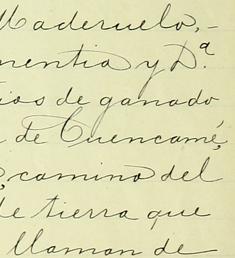 Maderuelo,-
mentia y D.ª
ios de ganado
de Cuencamé,
, camino del
de tierra que
llaman de